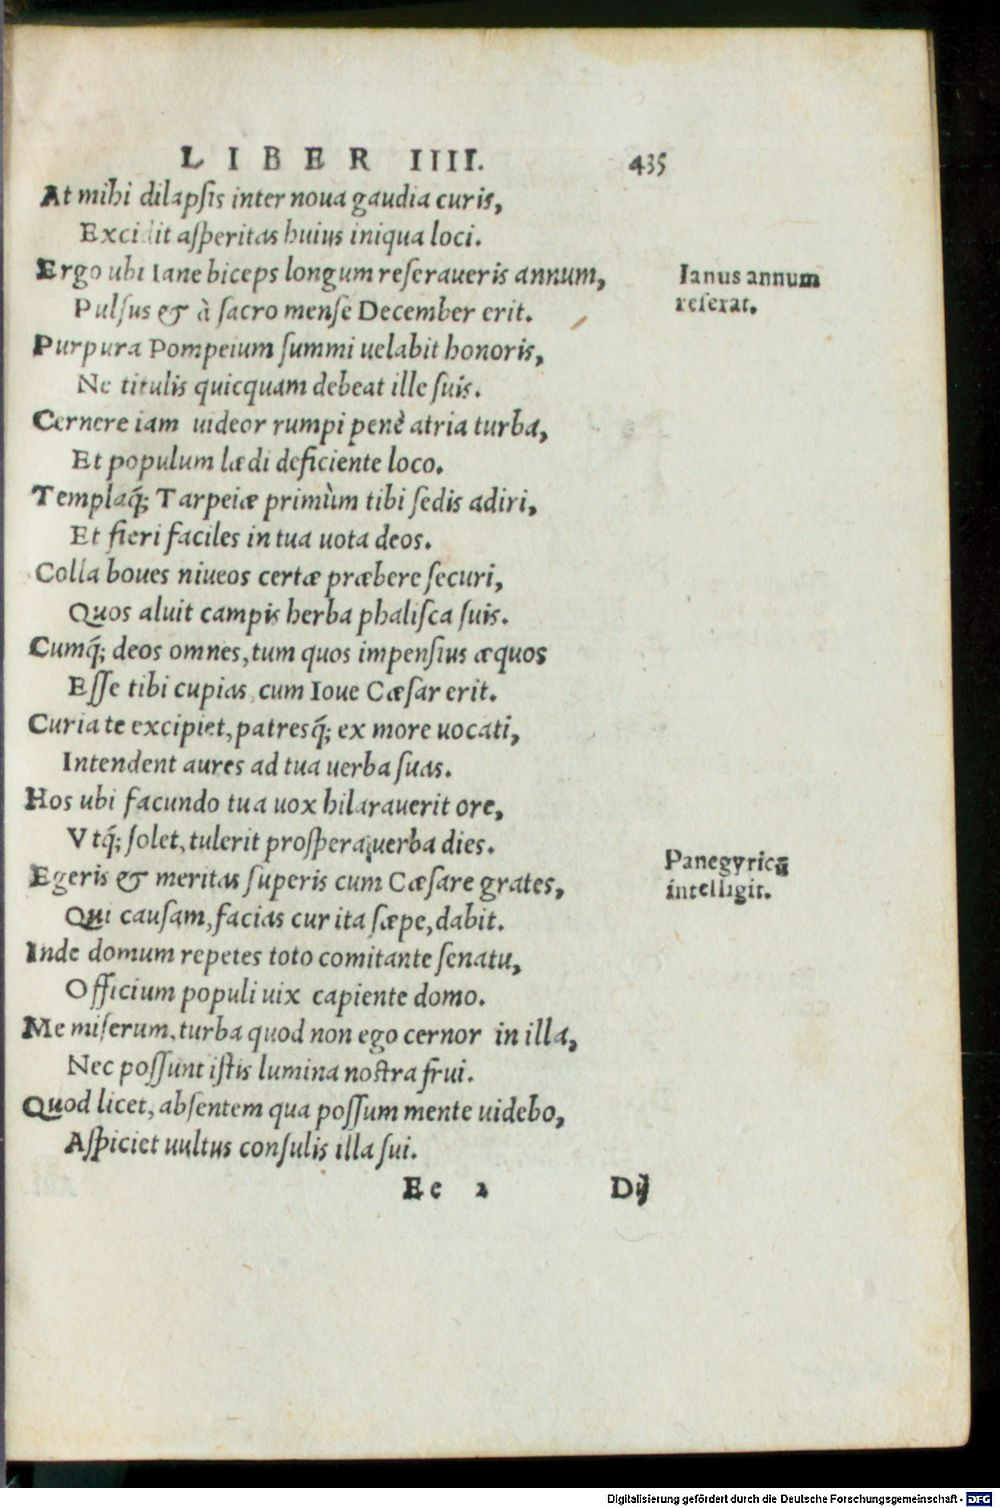 LIBER IIII. 435
At mihi dilapſis inter noua gaudia curis,
Excidit aſperitas huius iniqua loci.
Ergo ubi Iane biceps longum reſeraueris annum,
Ianus annum
reſerat.
Pulſus & à ſacro menſe December erit.
Purpura Pompeium ſummi uelabit honoris,
Ne titulis quicquam debeat ille ſuis.
Cernere iam uideor rumpi penè atria turba,
Et populum lædi deficiente loco.
Templaq́; Tarpeiæ primùm tibi ſedis adiri,
Et fieri faciles in tua uota deos.
Colla boues niueos certæ præbere ſecuri,
Quos aluit campis herba phaliſca ſuis.
Cumq́; deos omnes, tum quos impenſius æquos
Eſſe tibi cupias, cum Ioue Cæſar erit.
Curia te excipiet, patresq́; ex more uocati,
Intendent aures ad tua uerba ſuas.
Hos ubi facundo tua uox hilarauerit ore,
Vtq́; ſolet, tulerit proſpera uerba dies.
Egeris & meritas ſuperis cum Cæſare grates,
Panegyricū
intelligit.
Qui cauſam, facias cur ita ſæpe, dabit.
Inde domum repetes toto comitante ſenatu,
Officium populi uix capiente domo.
Me miſerum, turba quod non ego cernor in illa,
Nec poſſunt iſtis lumina noſtra frui.
Quod licet, abſentem qua poſſum mente uidebo,
Aſpiciet uultus conſulis illa ſui.
Ee 2 Dij
Digitalisierung gefördert durch die Deutsche Forschungsgemeinschaft - DFG